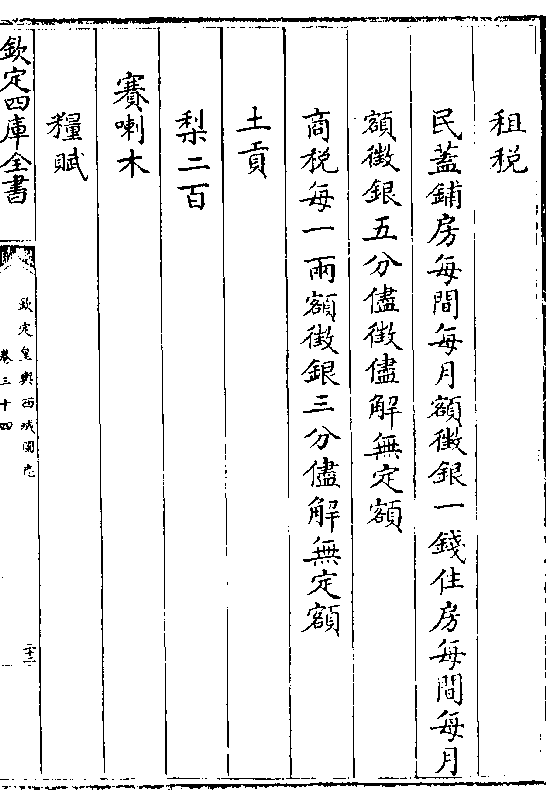 租税
民蓋鋪房每間每月額徵銀一錢住房每間每月
額徵銀五分儘徵儘解無定額
商税每一兩額徵銀三分儘解無定額
土貢
梨二百
賽喇木
糧賦
欽定四庫全書
欽定皇輿西域圖志
卷三十四
二十二